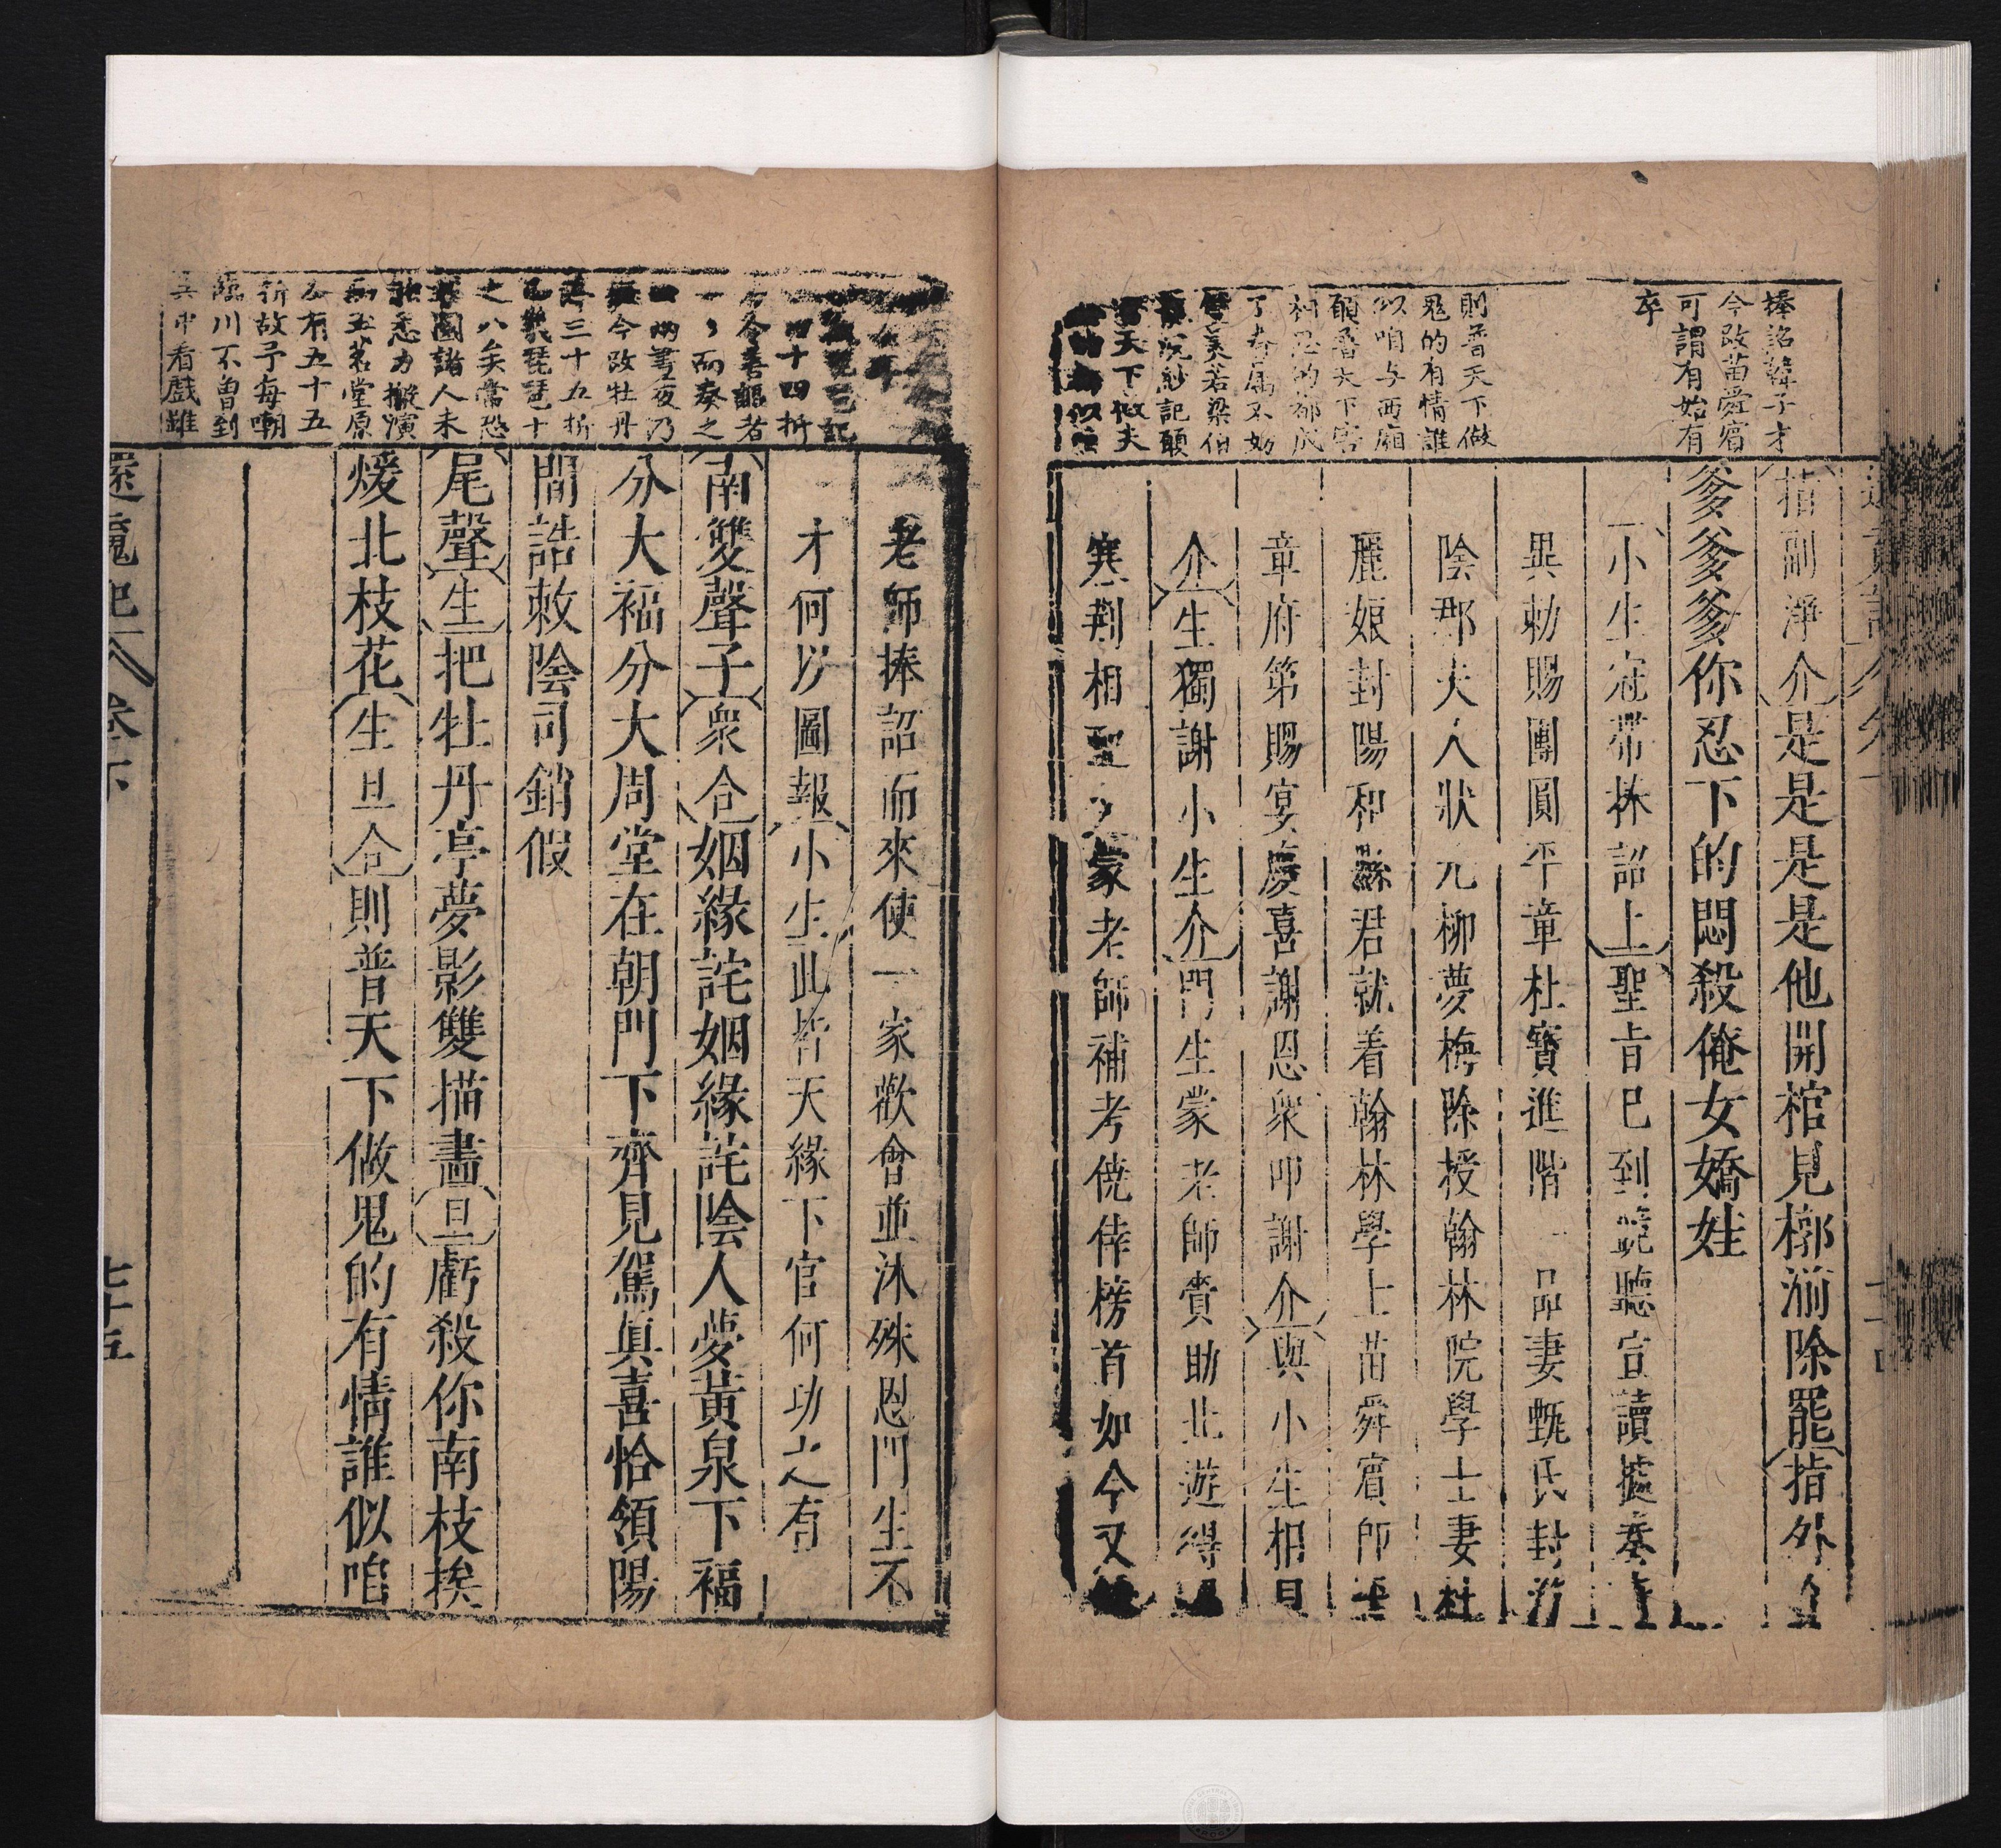 捧詔韓子才
今改苗舜賓
可謂有始有
卒
則普天下做
鬼的有情誰
似咱与西廂
願普天下
了眷属不妨
若梁伯
浣紗記願
天下做夫
指副淨介是是是是他開棺見槨湔除罷指外
爹爹爹你忍下的悶殺俺女嬌娃
小生冠帶捧詔上聖旨已到跪聽宣讀據奏
異勅賜團圓平章杜寶進階一品妻甄氏封
陰郡夫人狀元柳夢梅除授翰林院學士妻杜
麗娘封陽和縣君就着翰林學士苗舜賓即
章府第賜宴慶喜謝恩眾叩謝介與小生相見
介生獨謝小生介門生蒙老師賚助北遊得
寒荆相聖又蒙老師補考僥倖榜首如今又
四十四折
令善謳者
一丶而奏之
兩晝夜乃
今改牡丹
三十五折
幾琵琶十
之八矣常恐
圖諸人未
悉力搬演
玉茗堂原
本有五十五
折故予每嘲
臨川不曾到
吳中看戲雖
老師捧詔而來使一家歡會並沐殊恩門生不
才何以圖報小生此皆天緣下官何功之有
南雙聲子眾合姻緣詫姻緣詫陰人夢黃泉下福
分大福分大周堂在朝門下齊見駕真喜恰領陽
間誥敕陰司銷假
尾聲生把牡丹亭夢影雙描畫旦虧殺你南枝挨
煖北枝花生旦合則普天下做鬼的有情誰似咱
還魂記 卷下 七十五